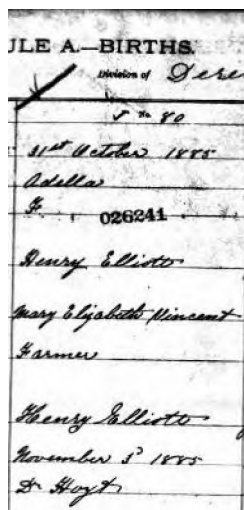 ULE A.—BIRTHS.
Division of Dere
No 80
31st October 1885
Adella
F. 026241
Henry Elliott
Mary Elizabeth Vincent
Farmer
Henry Elliott
November 3d 1885
Dr Hoyt